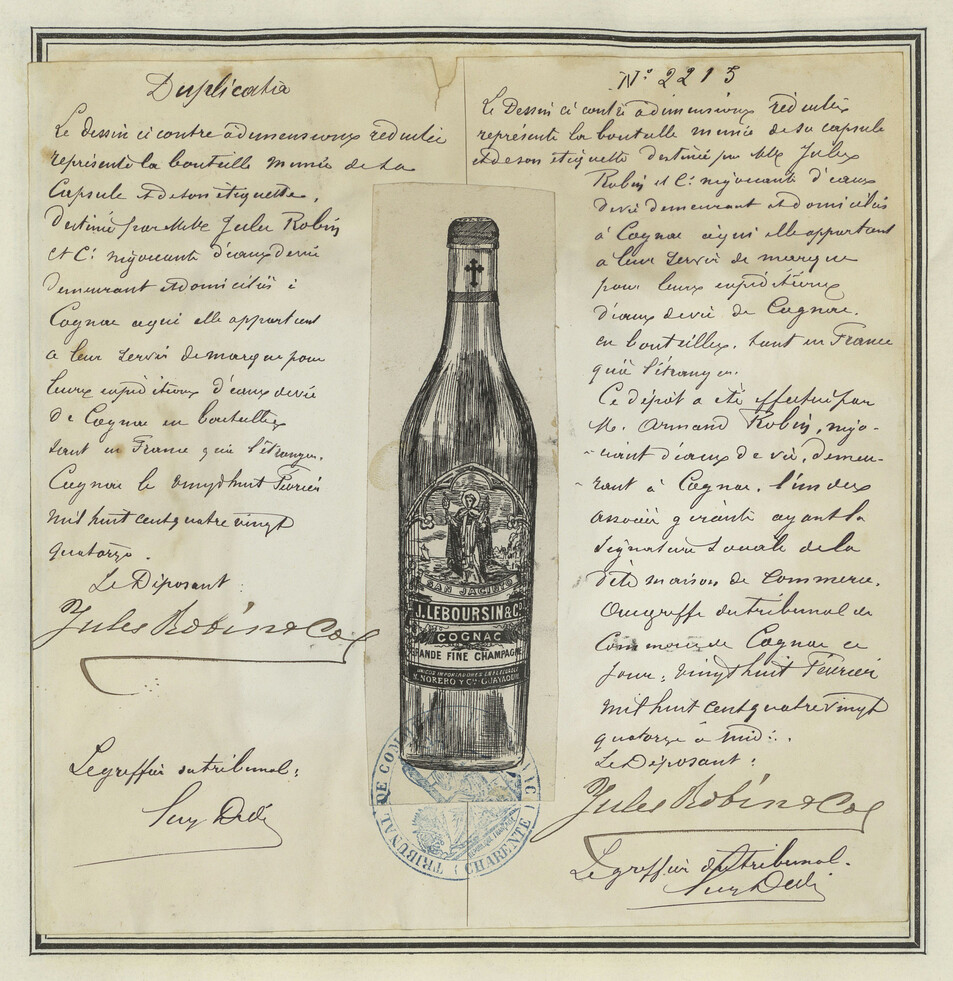 Duplicata
Le dessin ci contre à dimensions réduites
représente la bouteille munie de sa
Capsule et de son étiquette,
destinée par MM. Jules Robin
et Cie négociants d'eaux de vie
demeurant et domiciliés à
Cognac à qui elle appartient
à leur servir de marque pour
leurs expéditions d'eaux de vie
de Cognac en bouteilles
tant en France qu'à l'étranger.
Cognac le vingt huit Février
mil huit cent quatre vingt
quatorze.
Le Déposant :
Jules Robin & Co
Le greffier du tribunal :
No 2215
Le Dessin ci contre à dimensions réduites
représente la bouteille munie de sa capsule
et de son étiquette destinée par MM. Jules
Robin et Cie négociants d'eaux
de vie demeurant et domiciliés
à Cognac à qui elle appartient
à leur servir de marque
pour leurs expéditions
d'eaux de vie de Cognac.
en bouteilles, tant en France
qu'à l'étranger.
Ce dépôt a été effectué par
M. Armand Robin, négo-
-ciant d'eaux de vie, demeu-
-rant à Cognac, l'un des
associés gérants ayant la
signature sociale de la
dite maison de Commerce.
Au greffe du tribunal de
Commerce de Cognac ce
jour, vingt huit Février
mil huit cent quatre vingt
quatorze à midi.
Le Déposant :
Jules Robin & Co
Le greffier du tribunal.
SAN JACINTO
J. LEBOURSIN & Co
COGNAC
GRANDE FINE CHAMPAGNE
UNICOS IMPORTADORES EN EL ECUADOR
N. NORERO Y Cia GUAYAQUIL
TRIBUNAL DE COM NAC (CHARENTE)